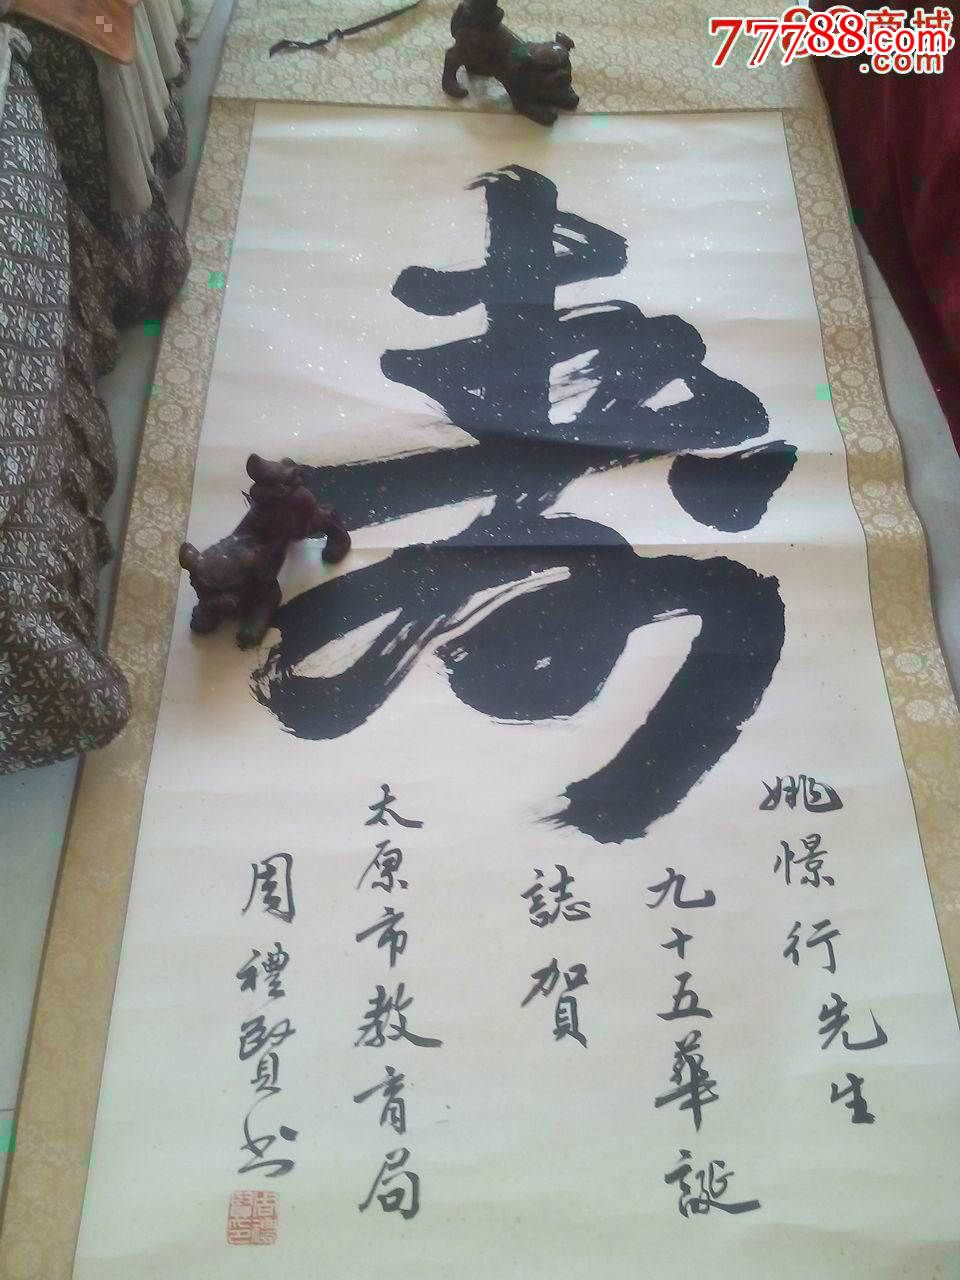 77788.com
商城
.com
寿
姚憬行先生
九十五華誕
誌賀
太原市教育局
周禮賢书